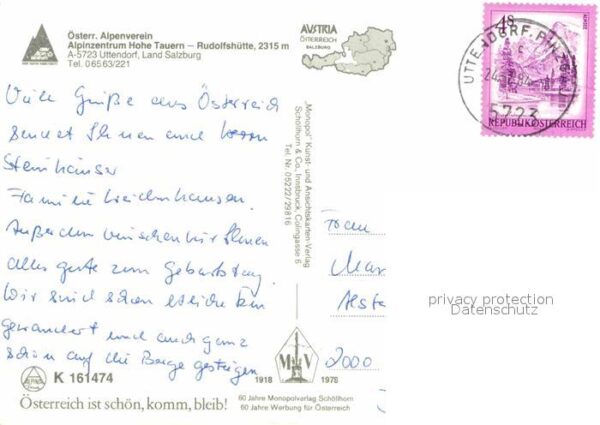 Österr. Alpenverein
Alpinzentrum Hohe Tauern – Rudolfshütte, 2315 m
A-5723 Uttendorf, Land Salzburg
Tel. 0 65 63/221
AUSTRIA
ÖSTERREICH
SALZBURG
4S
REPUBLIK ÖSTERREICH
UTTENDORF, PINZG
5723
Viele Grüße aus Österreich
sendet Ihnen und Herrn
Steinhäuser
Familie
Außerdem wünschen wir Ihnen
alles gute zum Geburtstag.
Wir sind schon etliche km
gewandert und auch ganz
schön auf die Berge gestiegen
"Monopol" Kunst- und Ansichtskarten-Verlag
Schöllhorn & Co., Innsbruck, Colingasse 6
Tel. Nr. 05222/29816
Frau
2000
privacy protection
Datenschutz
K 161474
M V
1918 1978
60 Jahre Monopolverlag Schöllhorn
60 Jahre Werbung für Österreich
Österreich ist schön, komm, bleib!